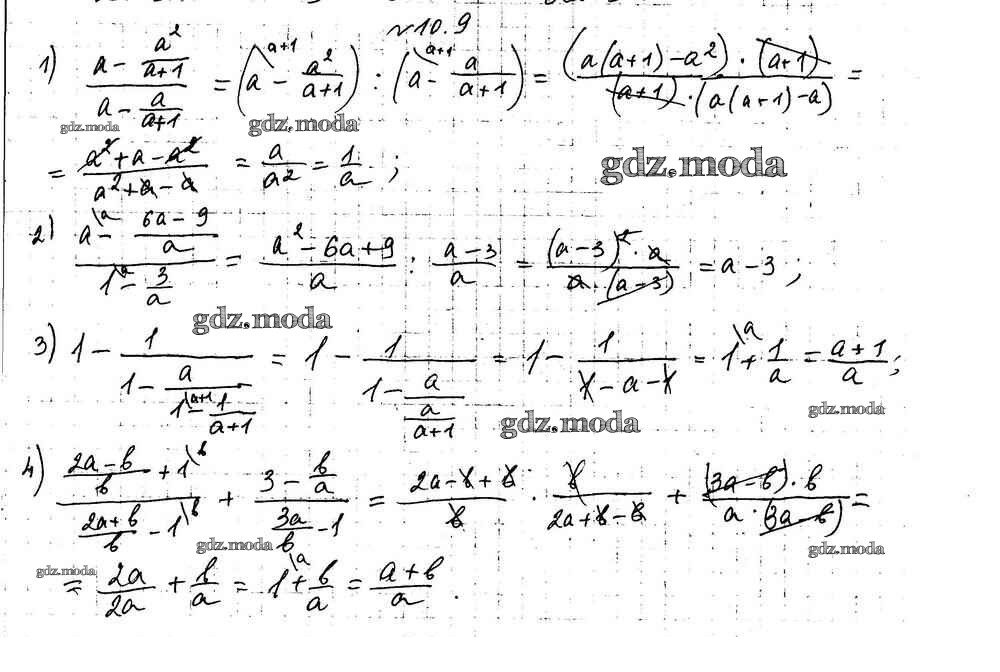 №10.9
1) (a - a²/(a+1))/(a - a/(a+1)) = (a\a+1 - a²/(a+1)) : (a\a+1 - a/(a+1)) = ((a(a+1)-a²)·(a+1))/((a+1)·(a(a+1)-a)) =
gdz.moda gdz.moda
= (a²+a-a²)/(a²+a-a) = a/a² = 1/a ;
gdz.moda
2) (a\a - (6a-9)/a)/(1\a - 3/a) = (a²-6a+9)/a : (a-3)/a = ((a-3)²·a)/(a·(a-3)) = a-3 ;
gdz.moda
3) 1 - 1/(1 - a/(1\a+1 - 1/(a+1))) = 1 - 1/(1 - a/(a/(a+1))) = 1 - 1/(1-a-1) = 1\a + 1/a = (a+1)/a ;
gdz.moda gdz.moda
4) ((2a-b)/b + 1\b)/((2a+b)/b - 1\b) + (3 - b/a)/(3a/b - 1) = (2a-b+b)/b · b/(2a+b-b) + ((3a-b)·b)/(a·(3a-b)) =
gdz.moda gdz.moda
gdz.moda
= 2a/2a + b/a = 1\a + b/a = (a+b)/a .